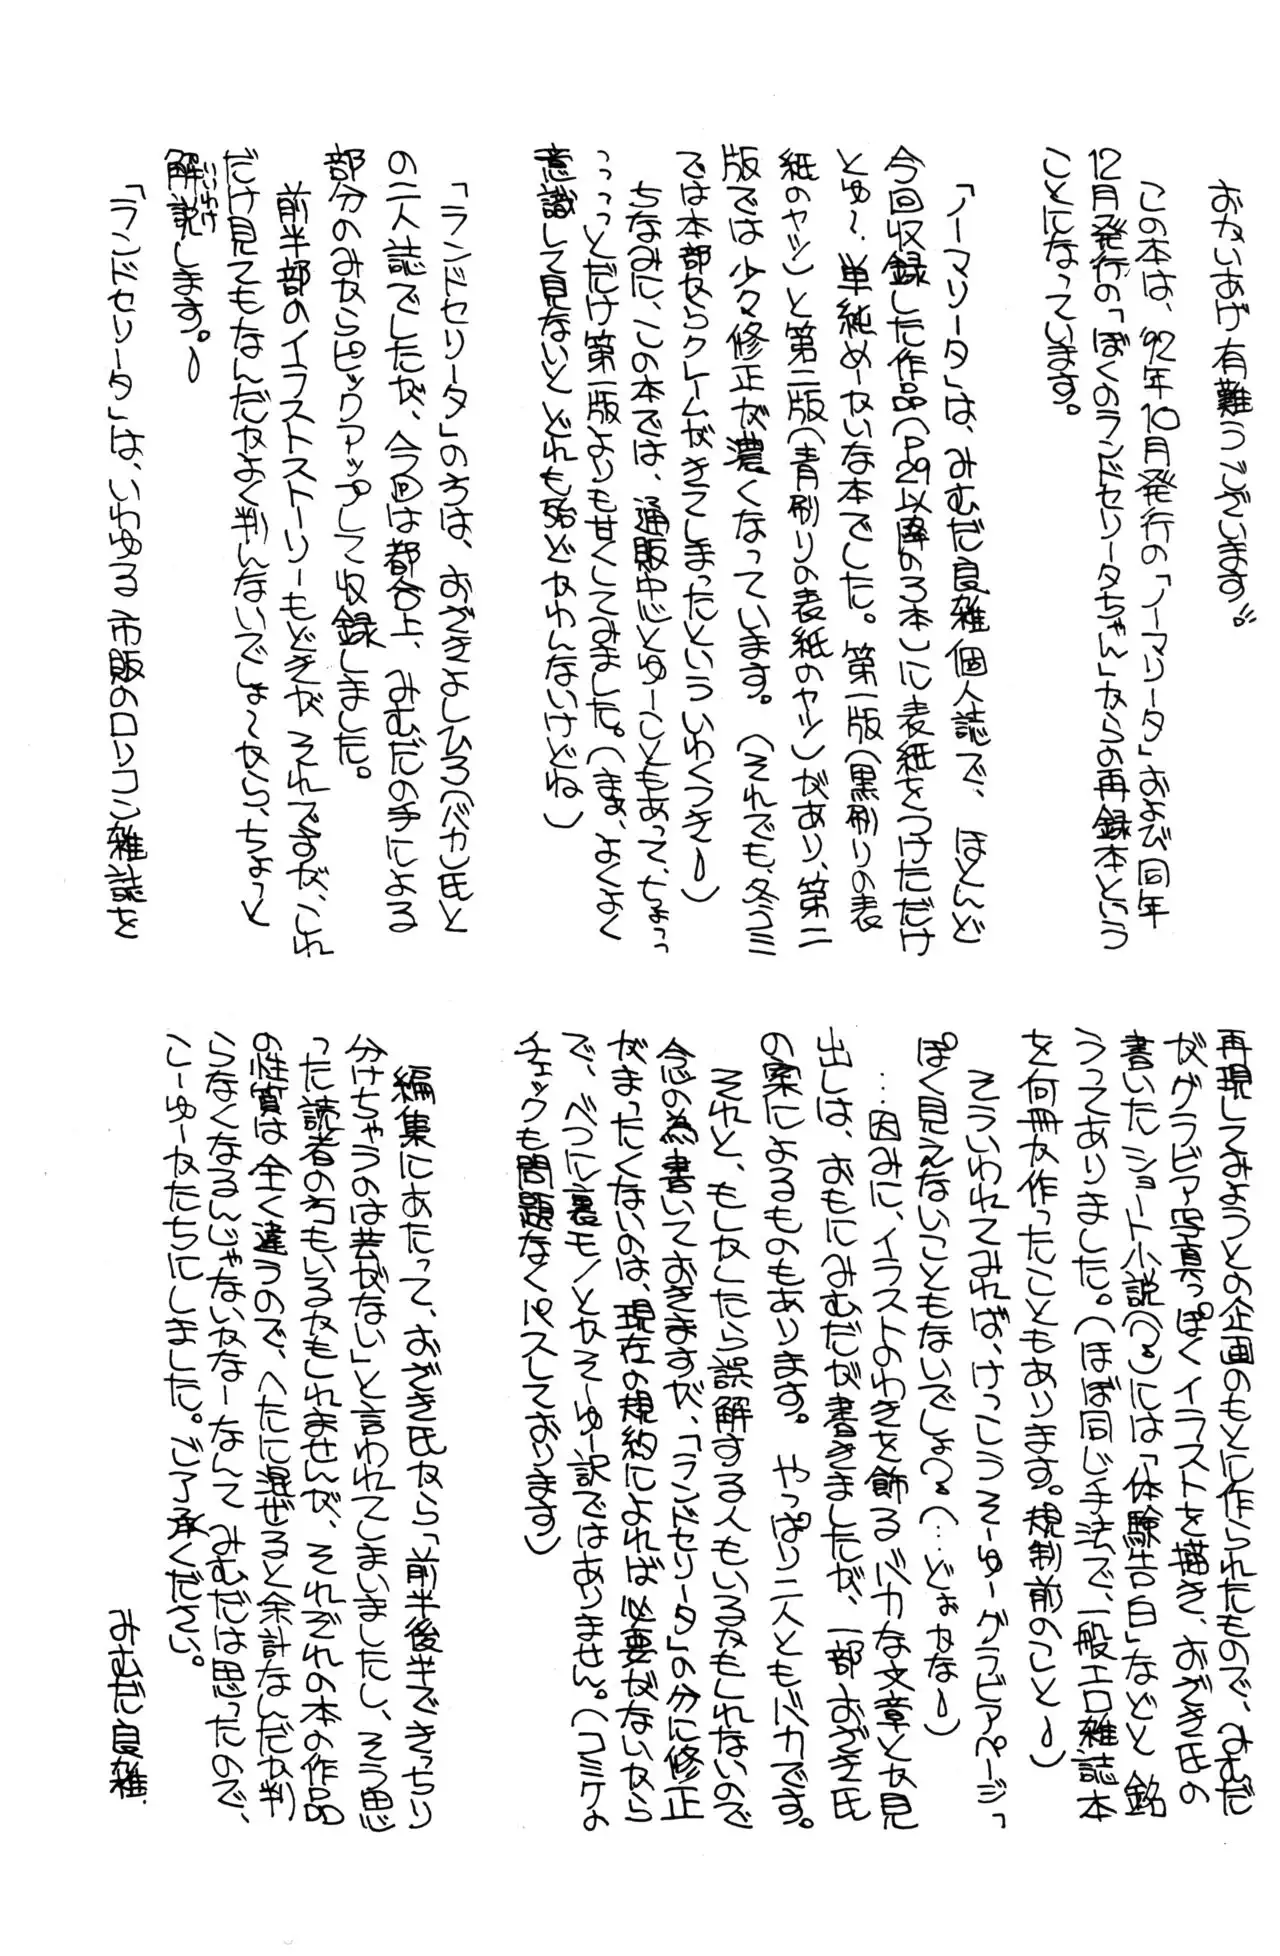 おかいあげ有難うございます〃
この本は、'92年10月発行の「ノーマリータ」および同年
12月発行の「ぼくのランドセリータちゃん」からの再録本という
ことになっています。
「ノーマリータ」は、みむだ良雑個人誌で、ほとんど
今回収録した作品(P29以降の3本)に表紙をつけただけ
とゆ〜、単純めーかいな本でした。第一版(黒刷りの表
紙のヤツ)と第二版(青刷りの表紙のヤツ)があり、第二
版では少々修正が濃くなっています。(それでも、冬コミ
では本部からクレームがきてしまったといういわくつき—)
ちなみに、この本では、通販中にとゆーこともあって、ちょっっ
っっっとだけ第一版よりも甘くしてみました。(まぁ、よくよく
意識して見ないとどれも殆どかわんないけどね)
「ランドセリータ」のろは、おざきよしひろ(バカ)氏と
の二人誌でしたが、今回は都合上、みむだの手による
部分のみからピックアップして収録しました。
前半部のイラストストーリーもどきが、それですが、これ
だけ見てもなんだかよく判んないでしょ〜から、ちょっと
解説いいわけします。—
「ランドセリータ」は、いわゆる市販のロリコン雑誌を
再現してみようとの企画のもとに作られたもので、みむだ
がグラビア写真っぽくイラストを描き、おざき氏の
書いたショート小説(?)には「体験告白」などと銘
うってありました。(ほぼ同じ手法で、一般エロ雑誌本
を何冊か作ったこともあります。規制前のこと—)
そういわれてみれば、けっこうそーゆーグラビアページっ
ぽく見えないこともないでしょ?(…どぉかな—)
…因みに、イラストのわきを飾るバカな文章とか見
出しは、おもにみむだが書きましたが、一部おざき氏
の案によるものもあります。やっぱり二人ともバカです。
それと、もしかしたら誤解する人もいるかもしれないので
念の為書いておきますが、「ランドセリータ」の分に修正
がまったくないのは、現在の規約によれば必要がないから
で、べつに裏モノとかそーゆー訳ではありません。(コミケの
チェックも問題なくパスしております)
編集にあたって、おざき氏から「前半後半できっちり
分けちゃうのは芸がない」と言われてしまいましたし、そう思
った読者の方もいるかもしれませんが、それぞれの本の作品
の性質は全く違うので、へたに混ぜると余計なんだか判
らなくなるんじゃないかなーなんてみむだは思ったので、
こーゆーかたちにしました。ご了承ください。
みむだ良雑.